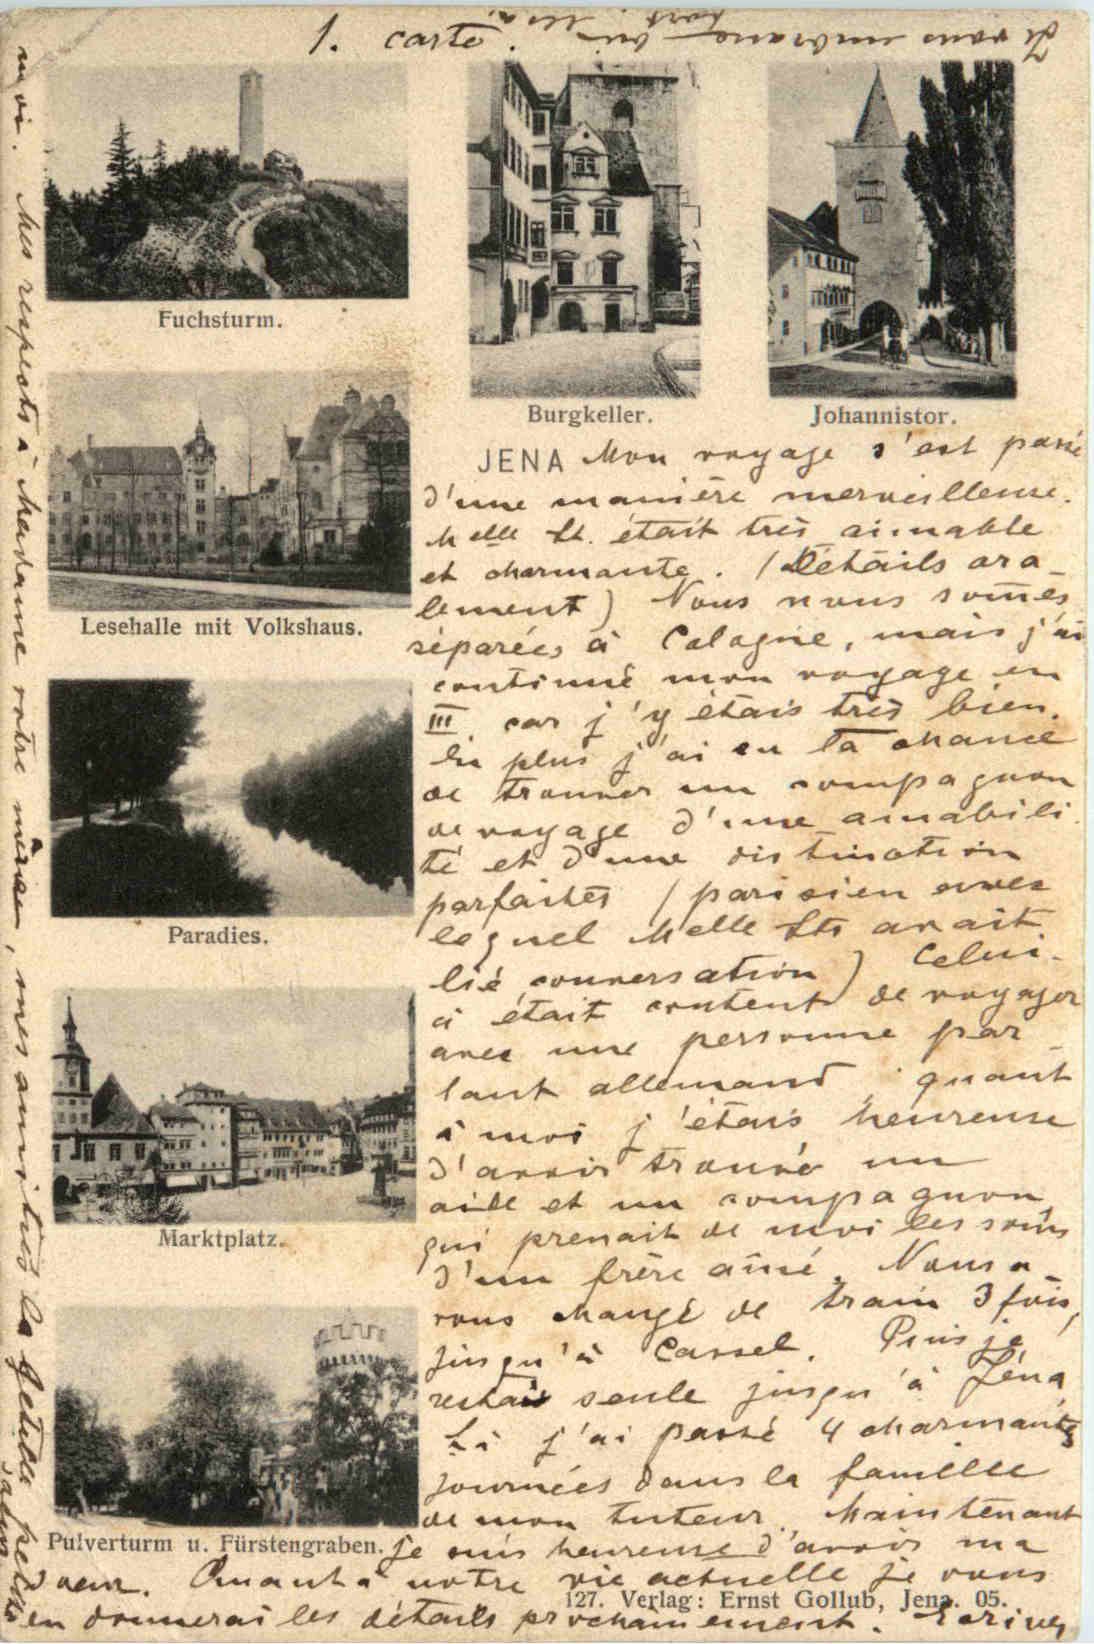 1. carte.
Je vous embrasse
Fuchsturm.
Burgkeller.
Johannistor.
Lesehalle mit Volkshaus.
Paradies.
Marktplatz.
Pulverturm u. Fürstengraben.
JENA Mon voyage s'est passé
d'une manière merveilleuse.
Melle St. était très aimable
et charmante. (Détails ora-
lement) Nous nous somes
séparées à Cologne, mais j'ai
continué mon voyage en
III car j'y étais très bien.
En plus j'ai eu la chance
de trouver un compagnon
de voyage d'une amabili
té et d'une distinction
parfaites (parisien avec
lequel Melle Sts avait
lié conversation) Celui-
ci était content de voyager
avec une personne par-
lant allemand, quant
à moi j'étais heureuse
d'avoir trouvé un
aide et un compagnon
qui prenait de moi les soins
d'un frère aîné. Nous a-
vons changé de train 3 fois,
jusqu'à Cassel. Puis je
restais seule jusqu'à Jéna
Là j'ai passé 4 charmantes
journées dans la famille
de mon tuteur. Maintenant
je suis heureuse d'avoir ma
sœur. Quant à notre vie actuelle je vous
en donnerai les détails prochainement. Ecrivez
127. Verlag: Ernst Gollub, Jena. 05.
moi. Mes respects à Madame votre mère, mes amitiés à la